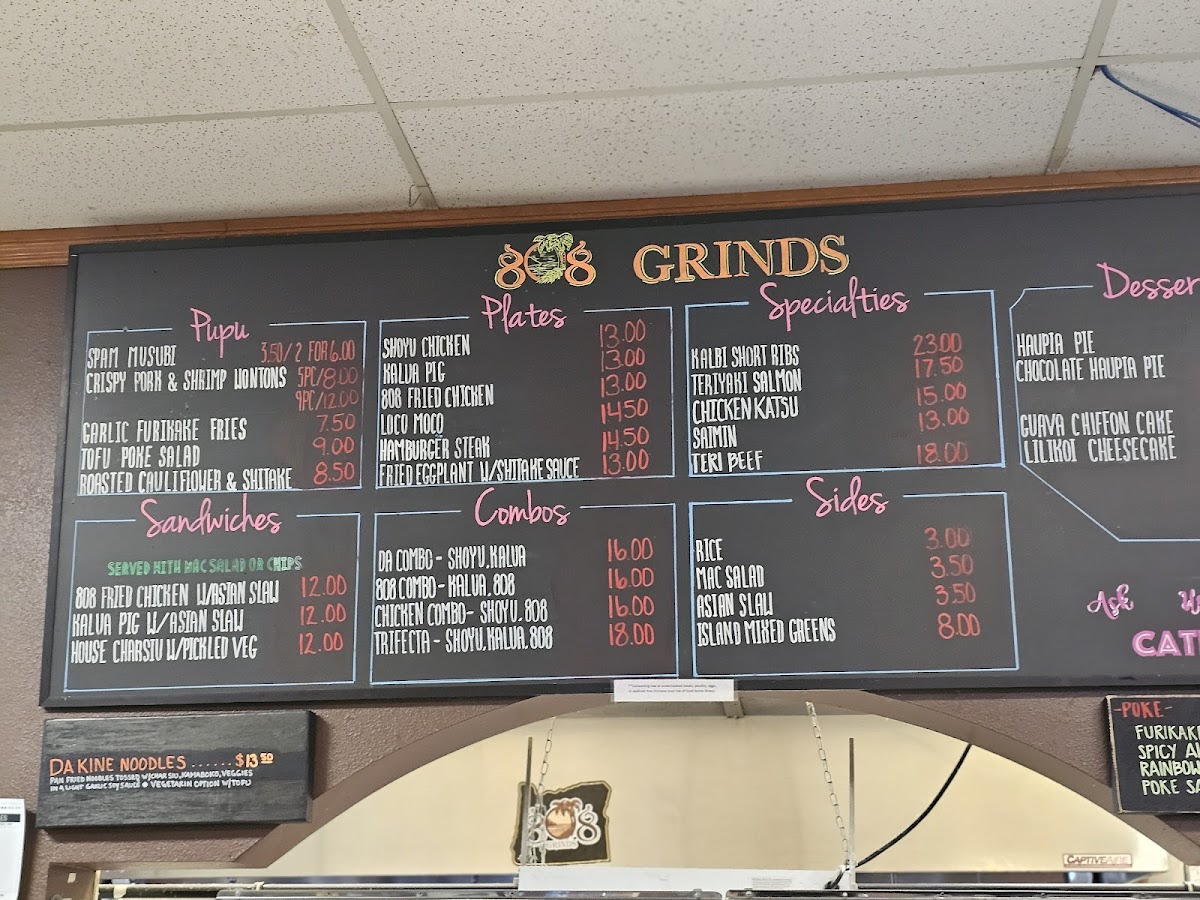 808 GRINDS
Pupu
SPAM MUSUBI 3.50/2 FOR 6.00
CRISPY PORK & SHRIMP WONTONS 5PC/8.00
9PC/12.00
GARLIC FURIKAKE FRIES 7.50
TOFU POKE SALAD 9.00
ROASTED CAULIFLOWER & SHITAKE 8.50
Plates
SHOYU CHICKEN 13.00
KALUA PIG 13.00
808 FRIED CHICKEN 13.00
LOCO MOCO 14.50
HAMBURGER STEAK 14.50
FRIED EGGPLANT W/SHITAKE SAUCE 13.00
Specialties
KALBI SHORT RIBS 23.00
TERIYAKI SALMON 17.50
CHICKEN KATSU 15.00
SAIMIN 13.00
TERI BEEF 18.00
Desser
HAUPIA PIE
CHOCOLATE HAUPIA PIE
GUAVA CHIFFON CAKE
LILIKOI CHEESECAKE
Sandwiches
SERVED WITH MAC SALAD OR CHIPS
808 FRIED CHICKEN W/ASIAN SLAW 12.00
KALUA PIG W/ASIAN SLAW 12.00
HOUSE CHARSIU W/PICKLED VEG 12.00
Combos
DA COMBO - SHOYU, KALUA 16.00
808 COMBO - KALUA, 808 16.00
CHICKEN COMBO - SHOYU, 808 16.00
TRIFECTA - SHOYU, KALUA, 808 18.00
Sides
RICE 3.00
MAC SALAD 3.50
ASIAN SLAW 3.50
ISLAND MIXED GREENS 8.00
Ask
CAT
DA KINE NOODLES ...... $13.50
PAN FRIED NOODLES TOSSED W/CHAR SIU, KAMABOKO, VEGGIES
IN A LIGHT GARLIC SOY SAUCE • VEGETARIN OPTION W/TOFU
-POKE-
FURIKAK
SPICY A
RAINBOW
POKE SA
808
GRINDS
CAPTIVEAIRE